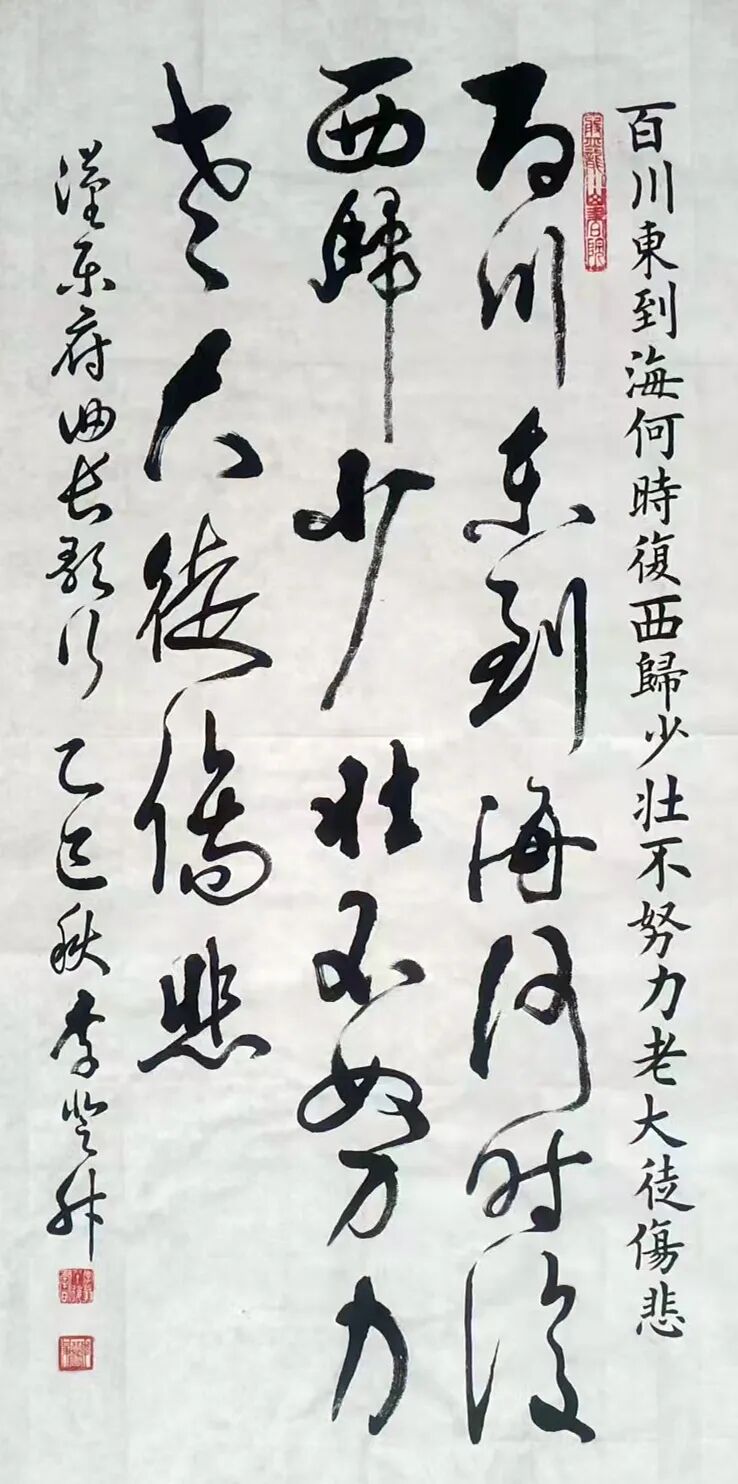 百川東到海何時復西歸少壯不努力老大徒傷悲
百川东到海何时復
西歸少壮不努力
老大徒傷悲
漢乐府曲长歌行 乙巳秋李登